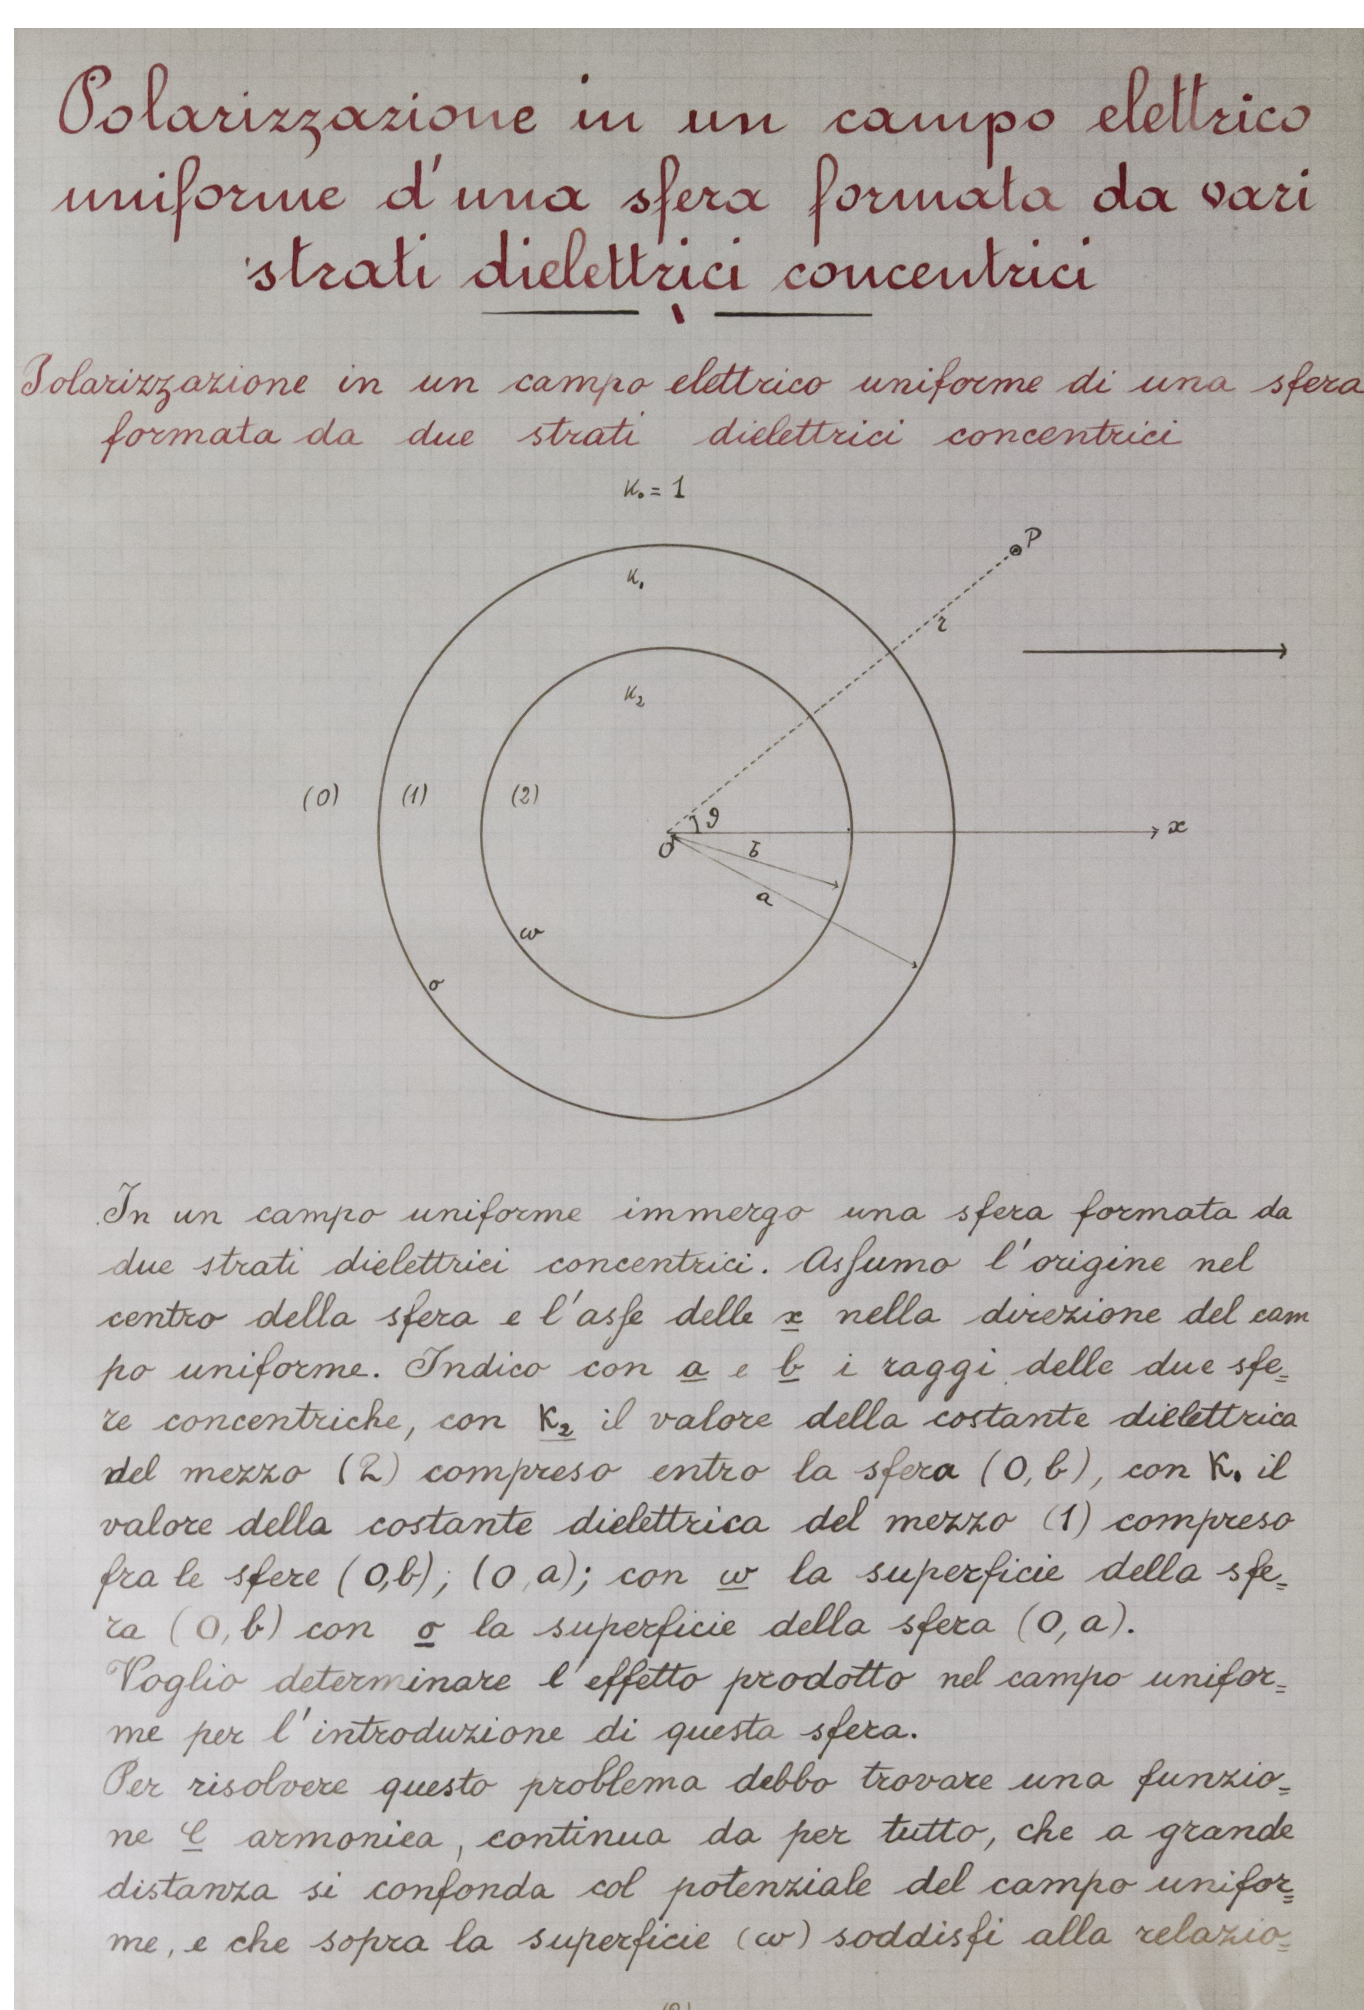 Polarizzazione in un campo elettrico
uniforme d'una sfera formata da vari
strati dielettrici concentrici
Polarizzazione in un campo elettrico uniforme di una sfera
formata da due strati dielettrici concentrici
K₀ = 1
P
K₁
r
K₂
(0) (1) (2)
θ
x
O
b
a
ω
σ
In un campo uniforme immergo una sfera formata da
due strati dielettrici concentrici. Assumo l'origine nel
centro della sfera e l'asse delle x nella direzione del cam
po uniforme. Indico con a e b i raggi delle due sfe=
re concentriche, con K₂ il valore della costante dielettrica
del mezzo (2) compreso entro la sfera (O, b), con K₁ il
valore della costante dielettrica del mezzo (1) compreso
fra le sfere (O, b); (O, a); con ω la superficie della sfe=
ra (O, b) con σ la superficie della sfera (O, a).
Voglio determinare l'effetto prodotto nel campo unifor=
me per l'introduzione di questa sfera.
Per risolvere questo problema debbo trovare una funzio=
ne φ armonica, continua da per tutto, che a grande
distanza si confonda col potenziale del campo unifor=
me, e che sopra la superficie (ω) soddisfi alla relazio=